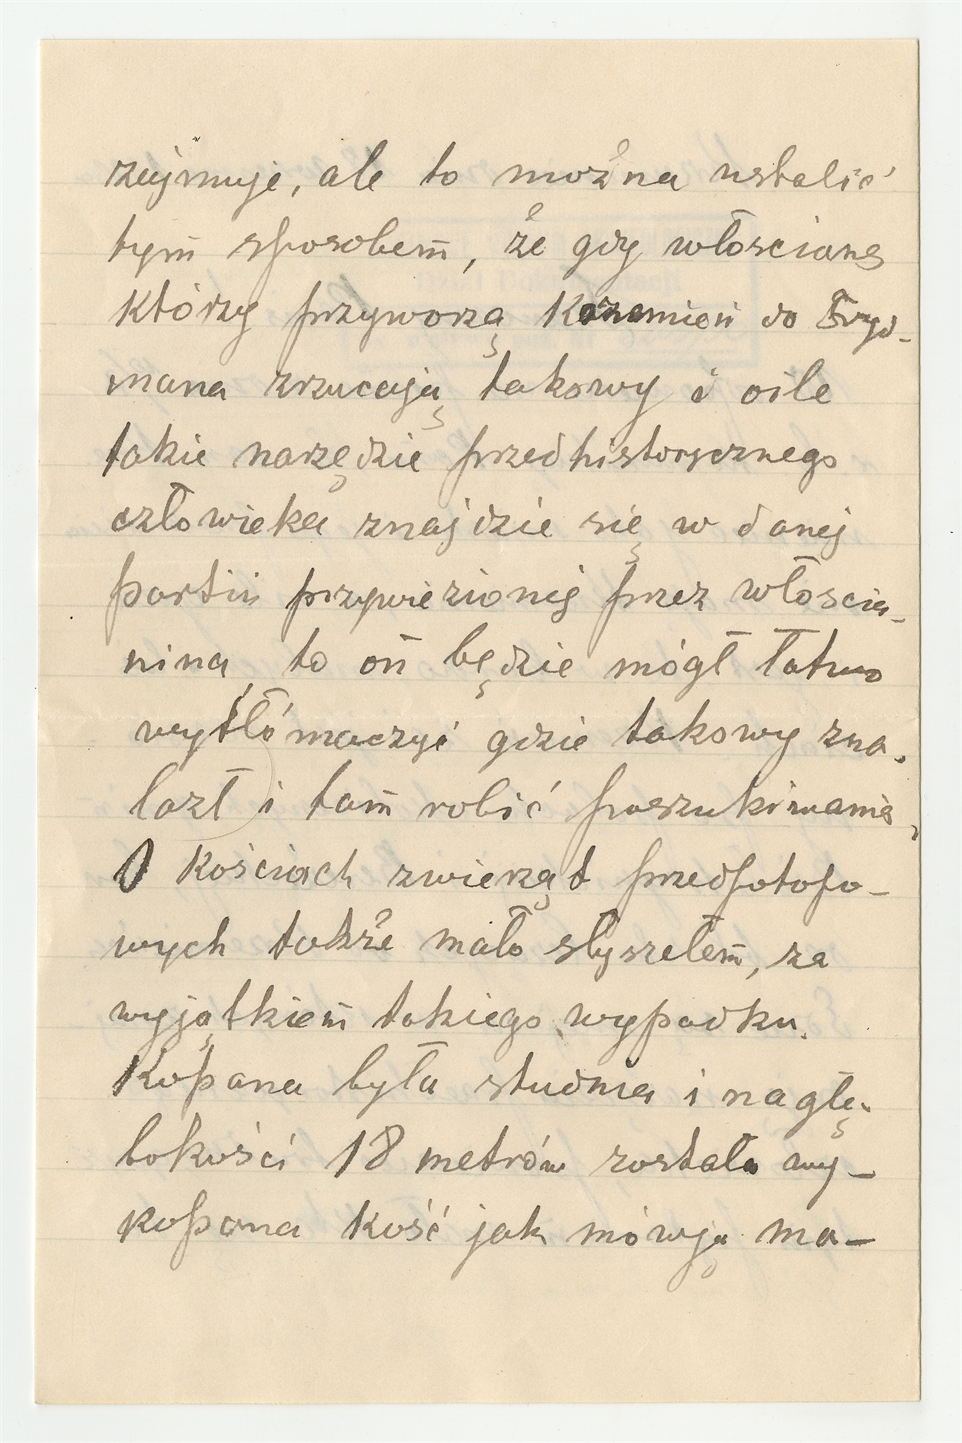 zajmuje, ale to można ustalić
tym sposobem, że gdy włościanę
którzy przyworzą Krzemień do Fryd-
mana zrzucają takowy i oile
takie narzędzie przedhistorycznego
człowieka znajdzie się w danej
partii przywiezionej przez włościa-
nina, to on będzie mógł łatwo
wytłómaczyć gdzie takowy zna-
lazł i tam robić poszukiwania,
O kościach zwierząt przedpotopo-
wych także mało słyszełem, za
wyjątkiem takiego wypadku.
Kopana była studnia i nagłę-
bokości 18 metrów została wy-
kopana kość jak mówją ma-